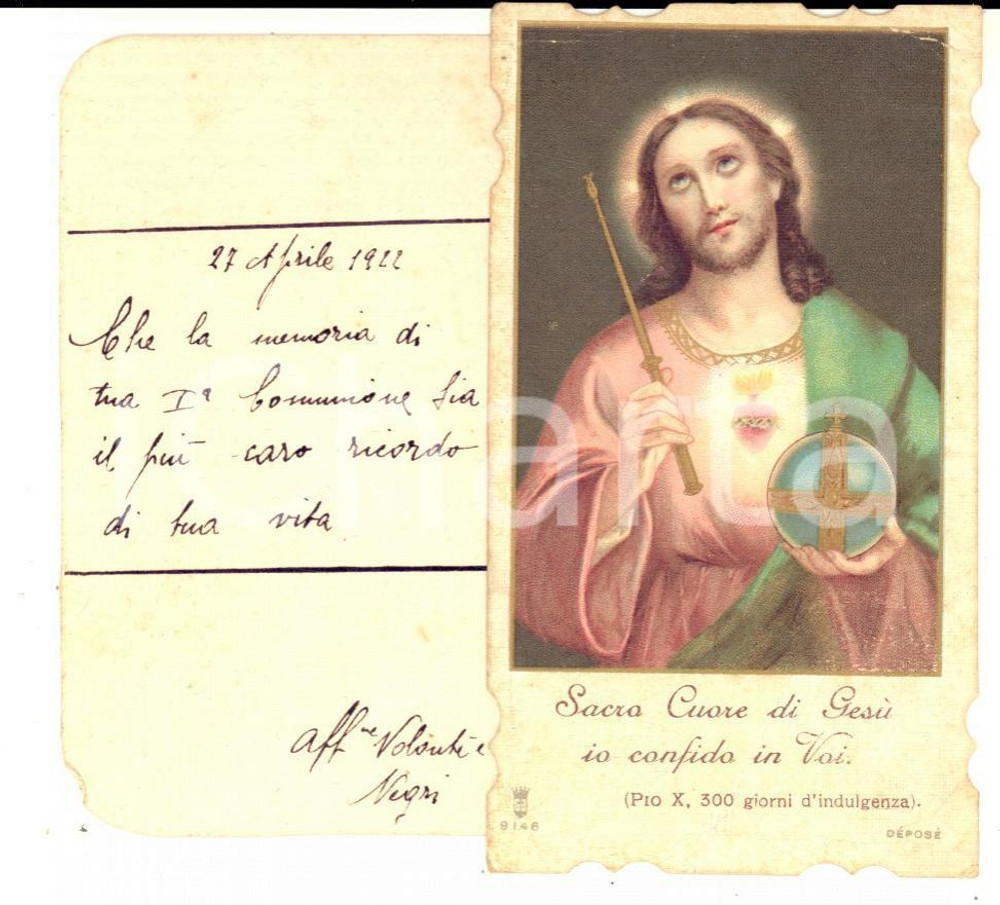 27 Aprile 1922
Che la memoria di
tua Iª Comunione sia
il più caro ricordo
di tua vita
Aff.ne Volontè e
Negri
Sacro Cuore di Gesù
io confido in Voi.
(PIO X, 300 giorni d'indulgenza).
9146
DÉPOSÉ